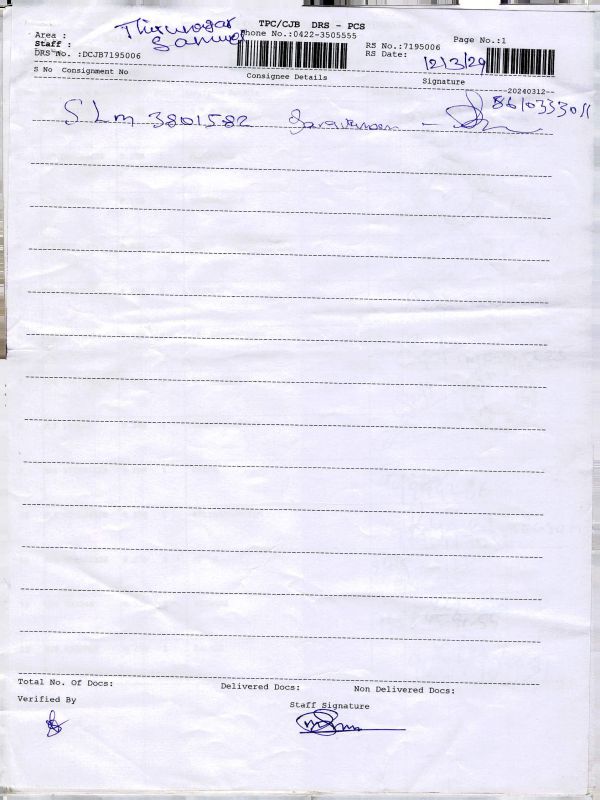 TPC/CJB DRS - PCS
Area :
Phone No.:0422-3505555
Page No.:1
Staff :
RS No.:7195006
DRS No. :DCJB7195006
RS Date: 12/3/24
S No Consignment No Consignee Details Signature
--20240312--
SLm 3801582 Saravanan - 8610333011
Total No. Of Docs: Delivered Docs: Non Delivered Docs:
Verified By
Staff Signature